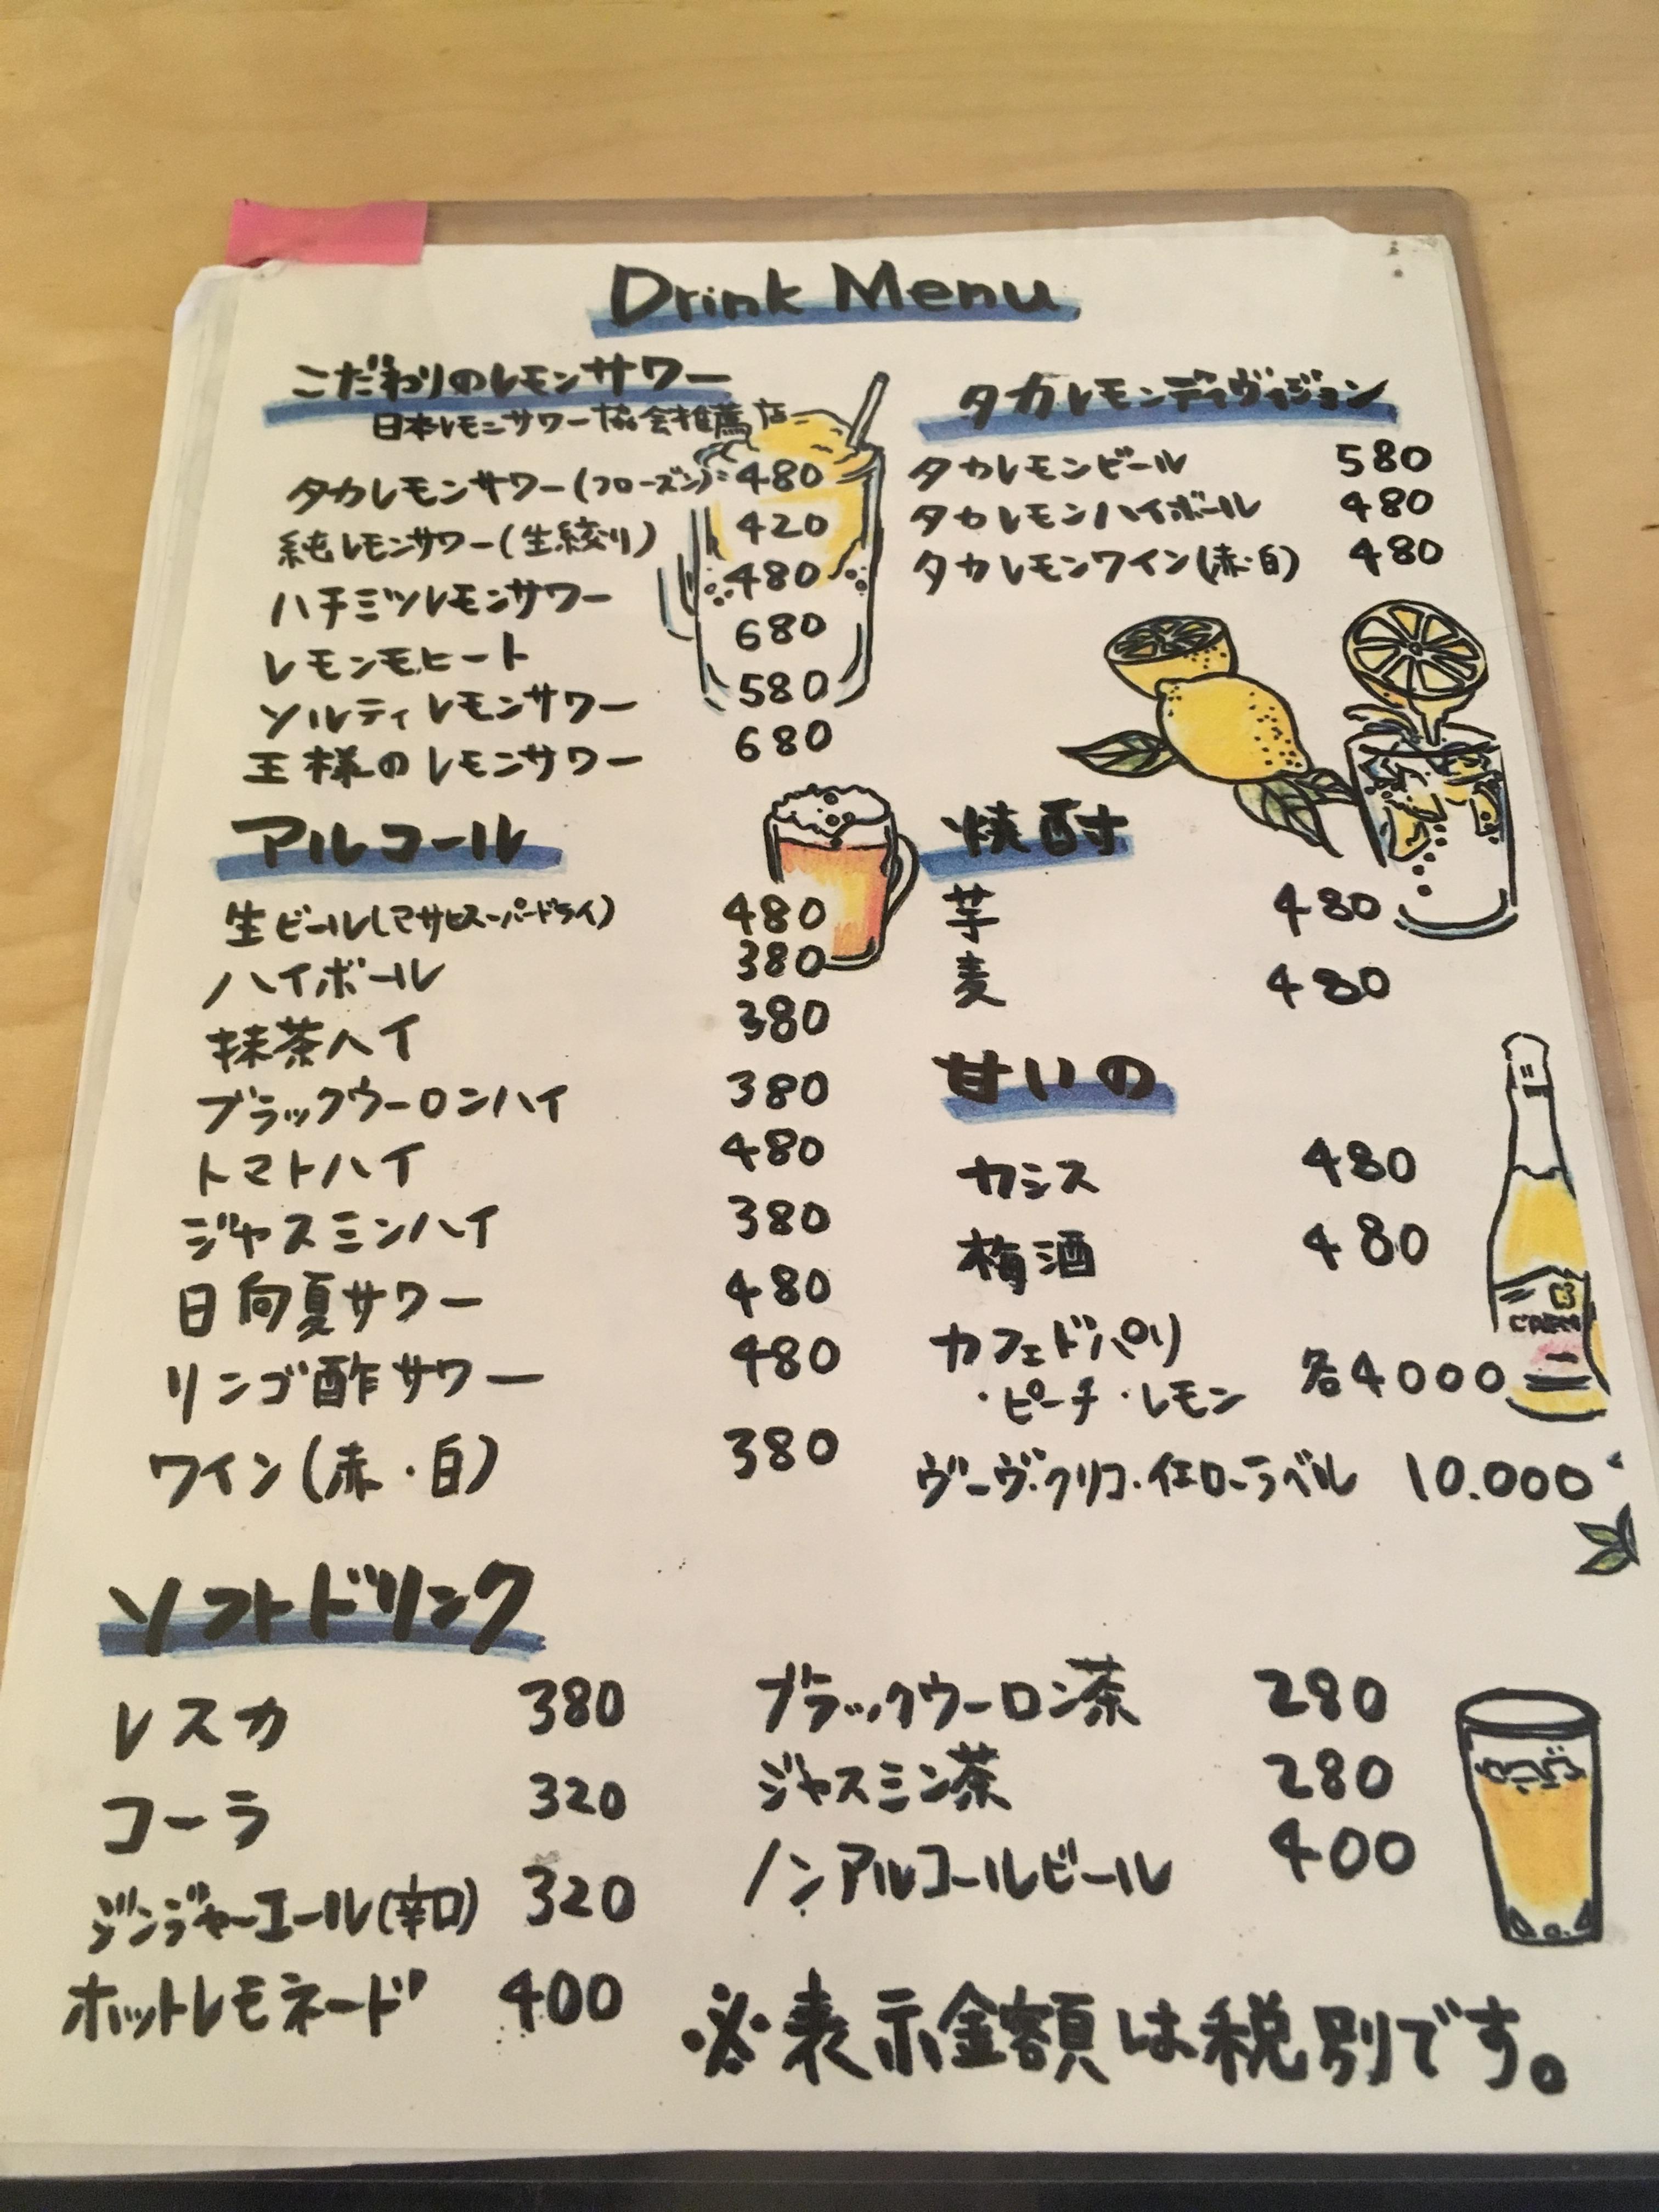 Drink Menu
こだわりのレモンサワー
日本レモンサワー協会推薦店
タカレモンサワー(フローズン) 480
純レモンサワー(生絞り) 420
ハチミツレモンサワー 480
レモンモヒート 680
ソルティレモンサワー 580
王様のレモンサワー 680
タカレモンディヴィジョン
タカレモンビール 580
タカレモンハイボール 480
タカレモンワイン(赤・白) 480
アルコール
生ビール(アサヒスーパードライ) 480
ハイボール 380
抹茶ハイ 380
ブラックウーロンハイ 380
トマトハイ 480
ジャスミンハイ 380
日向夏サワー 480
リンゴ酢サワー 480
ワイン(赤・白) 380
焼酎
芋 480
麦 480
甘いの
カシス 480
梅酒 480
カフェドパリ
・ピーチ・レモン 各4000
ヴーヴ・クリコ・イエローラベル 10.000
ソフトドリンク
レスカ 380
コーラ 320
ジンジャーエール(辛口) 320
ホットレモネード 400
ブラックウーロン茶 280
ジャスミン茶 280
ノンアルコールビール 400
※表示金額は税別です。